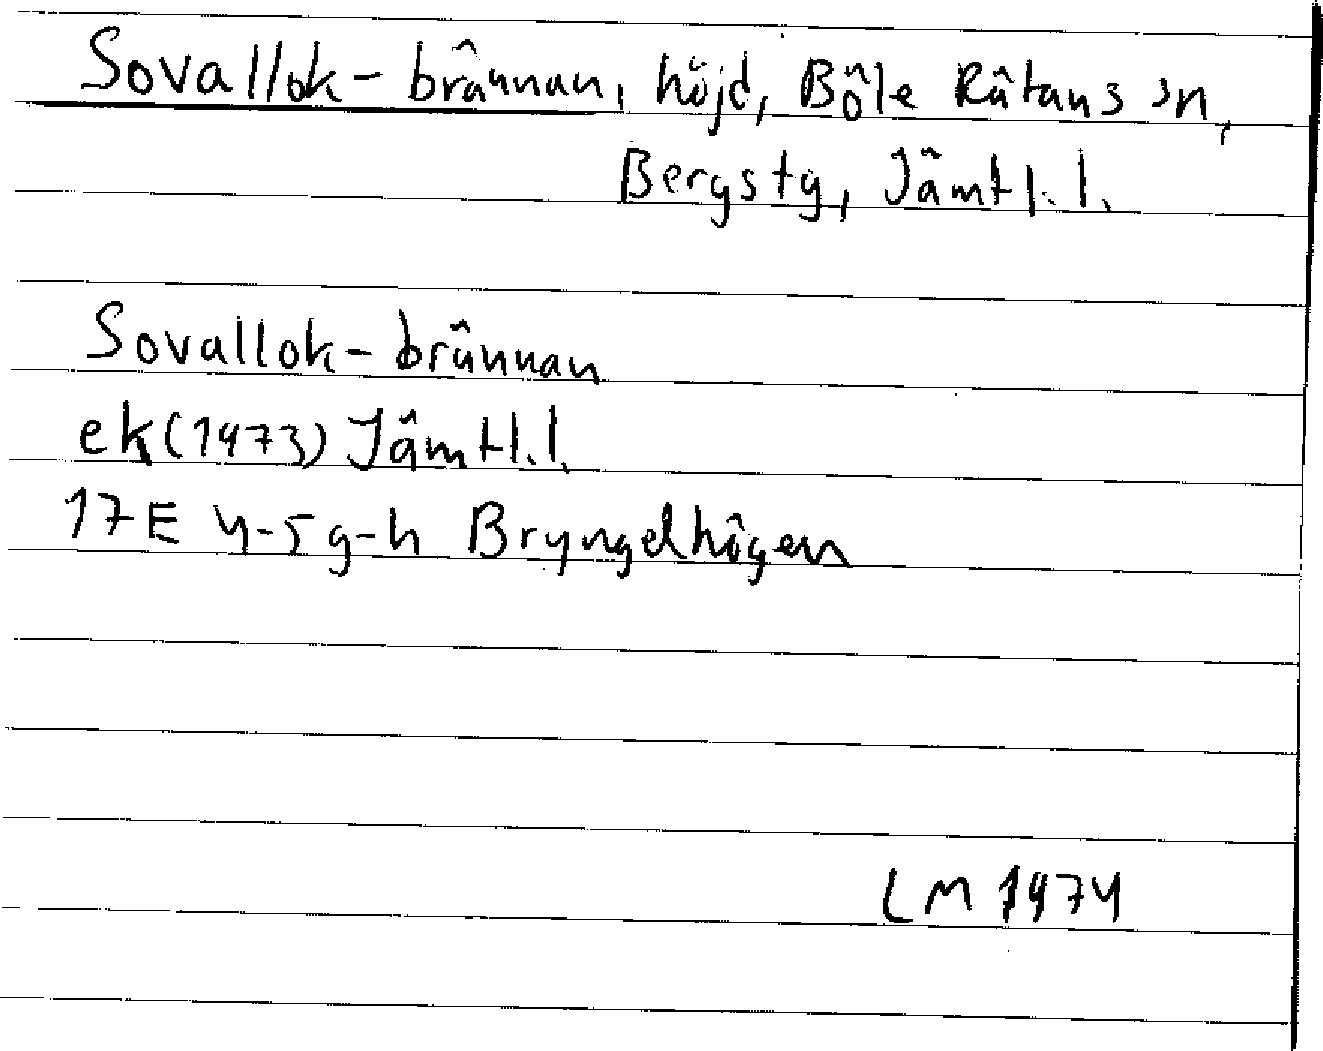 Sovallok-brännan, höjd, Böle Rätans sn,
Bergstg, Jämtl.l.
Sovallok-brännan
ek(1973) Jämtl.l.
17E 4-5 g-h Bryngelhögen
LM 1974